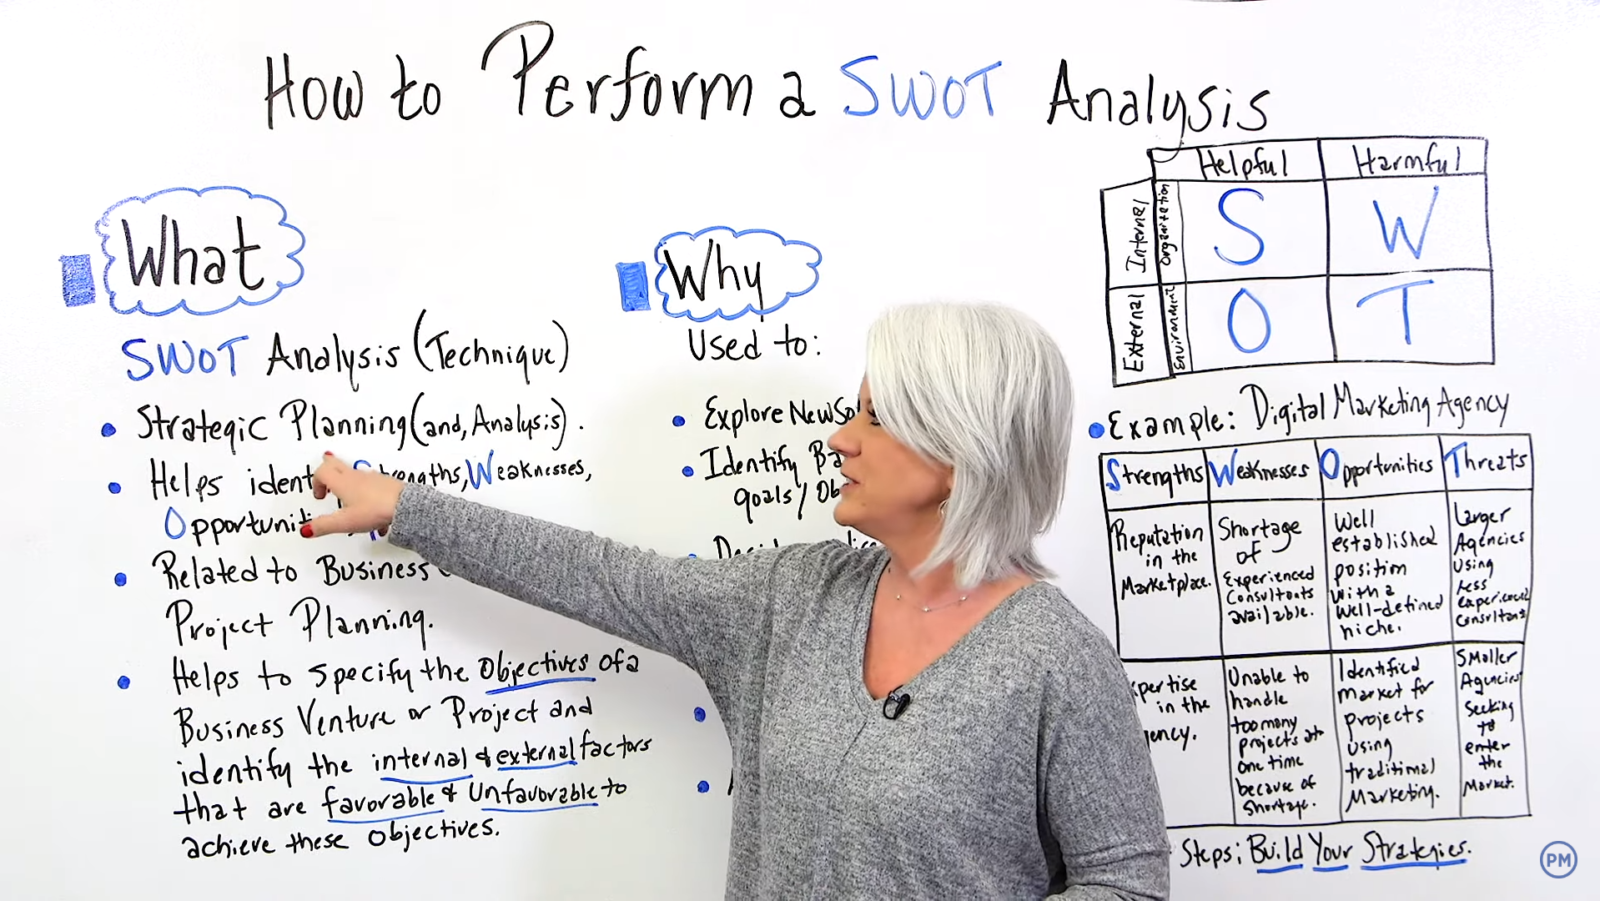 How to Perform a SWOT Analysis
What
SWOT Analysis (Technique)
Strategic Planning (and, Analysis).
Helps Strengths, Weaknesses,
Related to Business
Project Planning.
Helps to specify the Objectives of a
Business Venture or Project and
identify the internal & external factors
that are favorable & Unfavorable to
achieve these objectives.
Why
Used to:
Explore New
Identify
goals/
Helpful Harmful
Internal
Organization
S W
External
Environment
O T
Example: Digital Marketing Agency
Strengths Weaknesses Opportunities Threats
Reputation
in the
Marketplace.
Shortage
of
Experienced
Consultants
available.
Well
established
position
with a
well-defined
niche.
Larger
Agencies
using
less
experienced
consultants
in the
Unable to
handle
too many
projects at
one time
because of
shortage.
Identified
market for
projects
using
traditional
Marketing.
Smaller
Agencies
Seeking
to
enter
the
Market.
Steps: Build Your Strategies.
PM